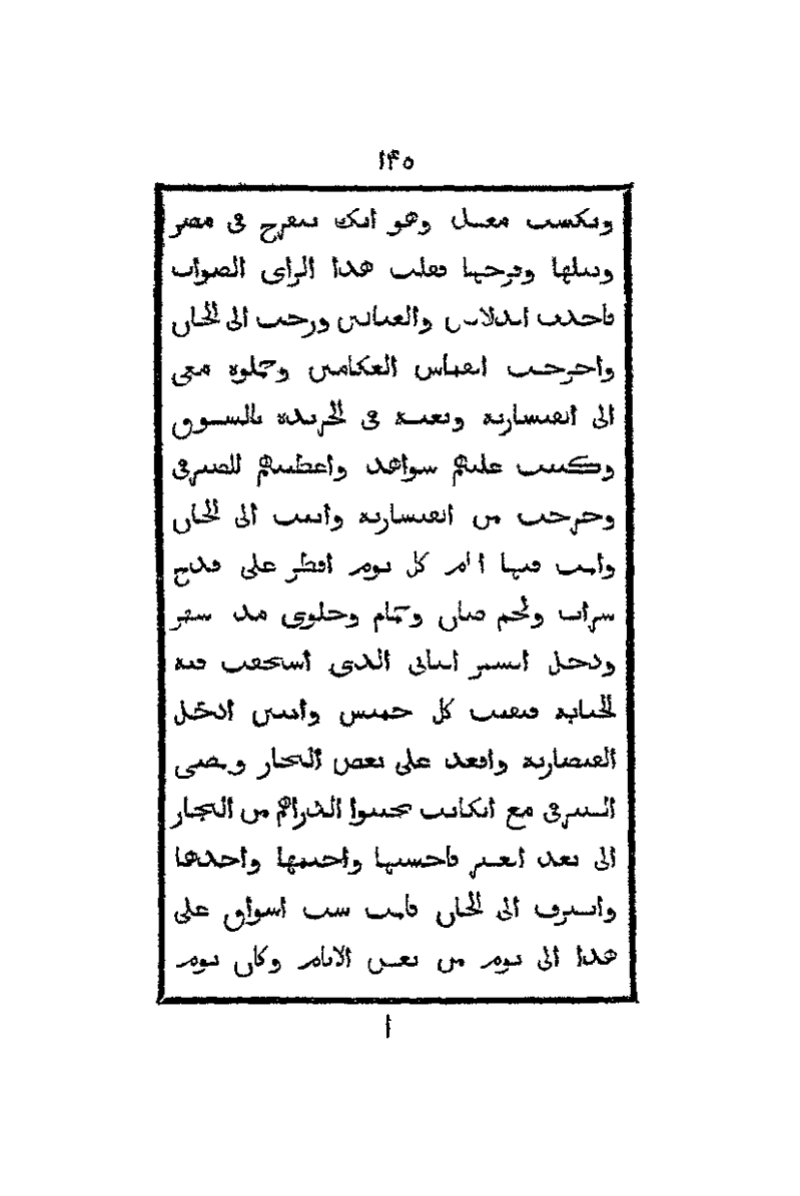 ١٤٥
وتكسب معيل وهو انك تتفرج فى مصر
ونيلها وفرجها فقلت هذا الراى الصواب
فاخذت الدلالين والعتالين ورحت الى الخان
واخرجت القماش العكامين وحملوه معى
الى القيسارية وبعته فى الجريدة بالسوق
وكتبت عليهم شواهد واعطيتهم للصيرفى
وخرجت من القيسارية واتيت الى الخان
واقمت فيها ايام كل يوم افطر على قدح
شراب ولحم ضان وحمام وحلوى مد شهر
ودخل الشهر الثانى الذى استحقت فيه
الجباية فبقيت كل خميس واثنين ادخل
القيصارية واقعد على بعض التجار ويمضى
الصيرفى مع الكاتب يجيبوا الدراهم من التجار
الى بعد العصر فاحسبها واختمها واخدها
وانصرف الى الخان فاقمت ست اسواق على
هذا الى يوم من بعض الايام وكان يوم
ا